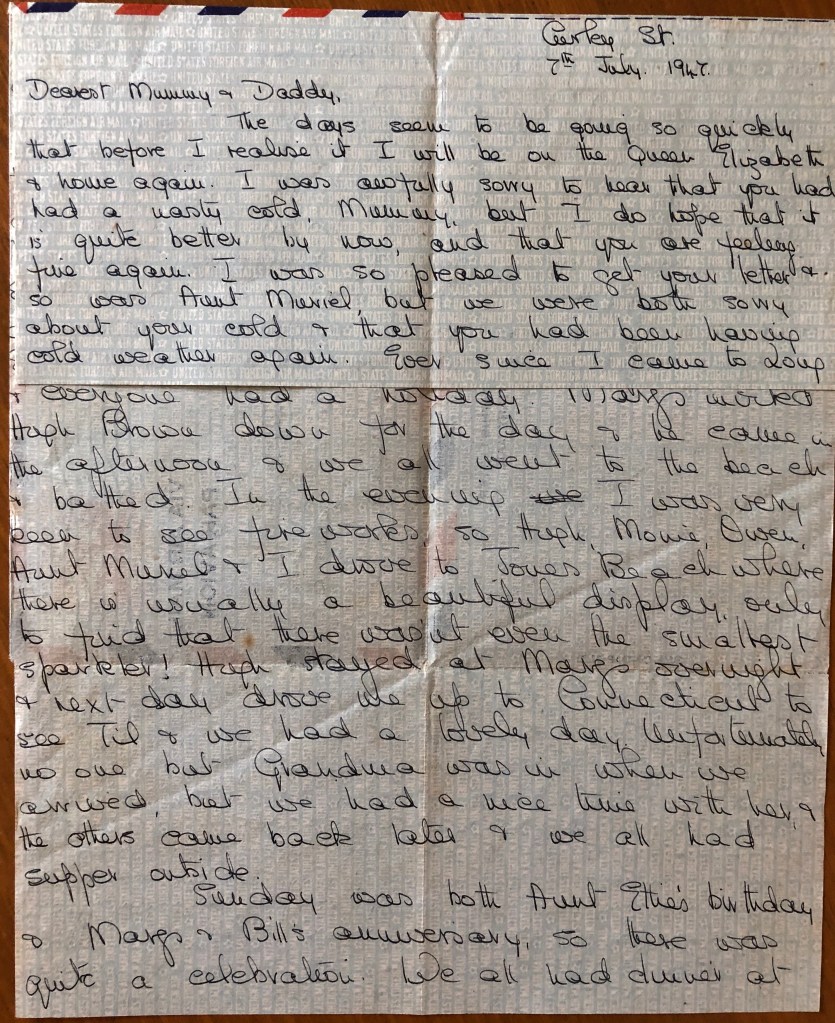 Curley St.
7th July. 1947.
Dearest Mummy & Daddy,
The days seem to be going so quickly
that before I realise it I will be on the Queen Elizabeth
& home again. I was awfully sorry to hear that you had
had a nasty cold, Mummy, but I do hope that it
is quite better by now, and that you are feeling
fine again. I was so pleased to get your letter &
so was Aunt Muriel, but we were both sorry
about your cold & that you had been having
cold weather again. Ever since I came to Long
& everyone had a holiday. Margs invited
Hugh Brown down for the day & he came in
the afternoon & we all went to the beach
& bathed. In the evening I was very
keen to see fireworks, so Hugh, Monie, Owen,
Aunt Muriel & I drove to Jones Beach where
there is usually a beautiful display, only
to find that there wasn't even the smallest
sparkler! Hugh stayed at Margs overnight
& next day drove me up to Connecticut to
see Til & we had a lovely day. Unfortunately
no one but Grandma was in when we
arrived, but we had a nice time with her, &
the others came back later & we all had
supper outside.
Sunday was both Aunt Ethie's birthday
& Margs & Bill's anniversary, so there was
quite a celebration. We all had dinner at